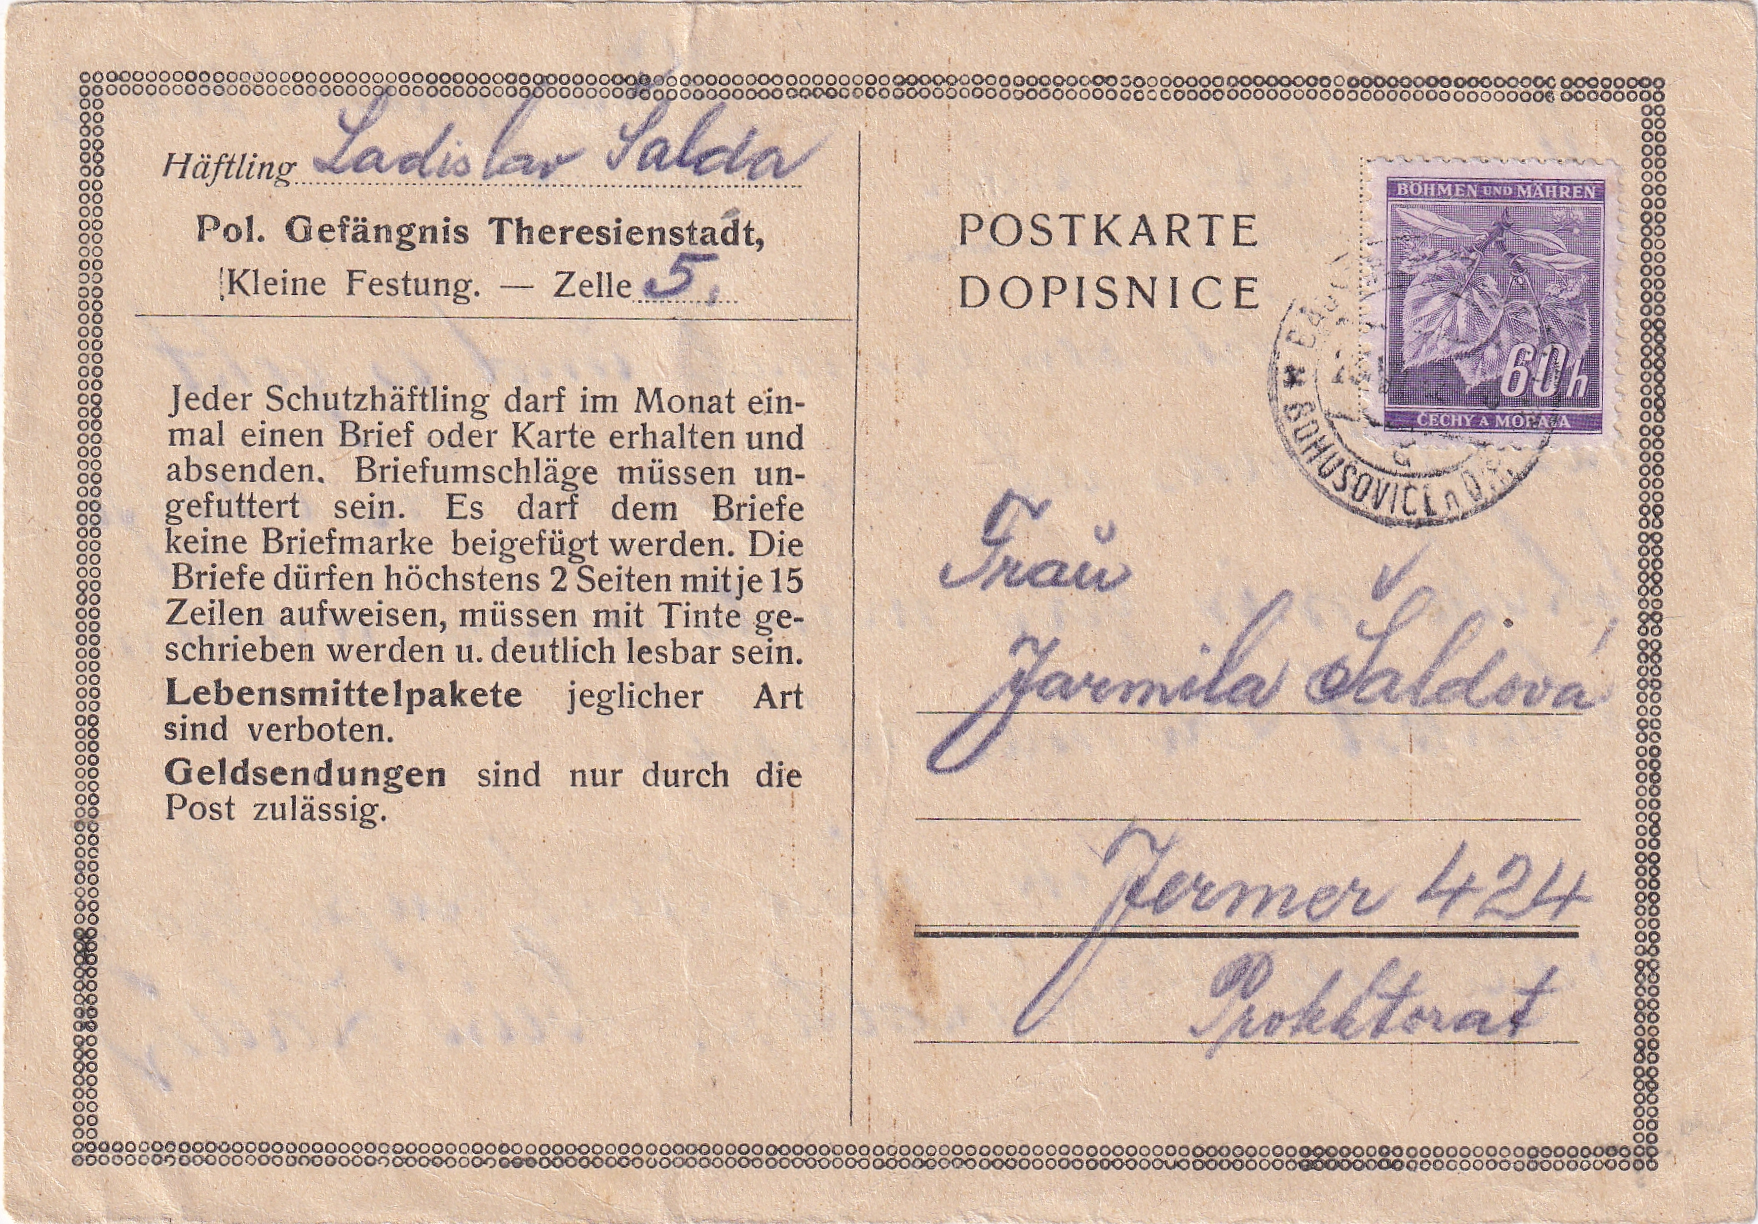 Häftling Ladislav Šalda
Pol. Gefängnis Theresienstadt,
Kleine Festung. — Zelle 5.
Jeder Schutzhäftling darf im Monat ein-
mal einen Brief oder Karte erhalten und
absenden. Briefumschläge müssen un-
gefuttert sein. Es darf dem Briefe
keine Briefmarke beigefügt werden. Die
Briefe dürfen höchstens 2 Seiten mit je 15
Zeilen aufweisen, müssen mit Tinte ge-
schrieben werden u. deutlich lesbar sein.
Lebensmittelpakete jeglicher Art
sind verboten.
Geldsendungen sind nur durch die
Post zulässig.
POSTKARTE
DOPISNICE
BÖHMEN UND MÄHREN
60h
ČECHY A MORAVA
BOHUŠOVICE n
Frau
Jarmila Šaldová
Jermer 424
Prokktorat